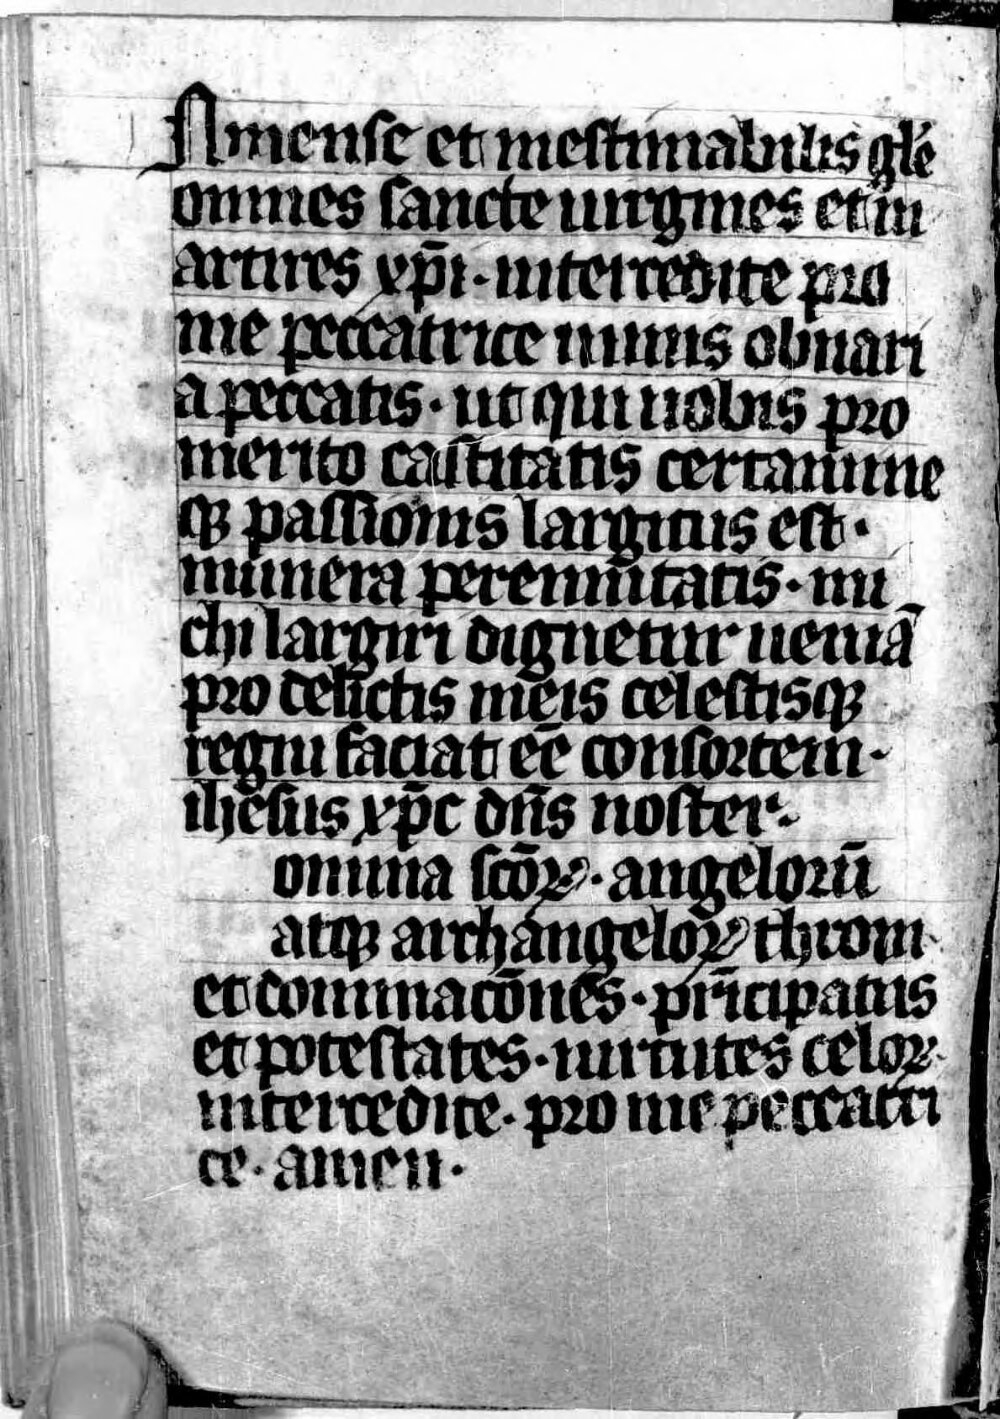 Inmense et inestimabilis gl̄e
omnes sancte uirgines et m
artires xp̄i · intercedite pro
me peccatrice nimis obnari
a peccatis · ut qui uobis pro
merito castitatis certamine
qꝫ passionis largitus est ·
munera perennitatis · mi
chi largiri dignetur ueniā
pro delictis meis celestisqꝫ
regni faciat ēē consortem ·
ihesus xp̄c dn̄s noster ·
omnia sc̄oꝝ · angelorū
atqꝫ archangeloꝝ throni
et dominacōnes · pr̄icipatus
et potestates · uirtutes celoꝝ
intercedite · pro me peccatri
ce · amen ·